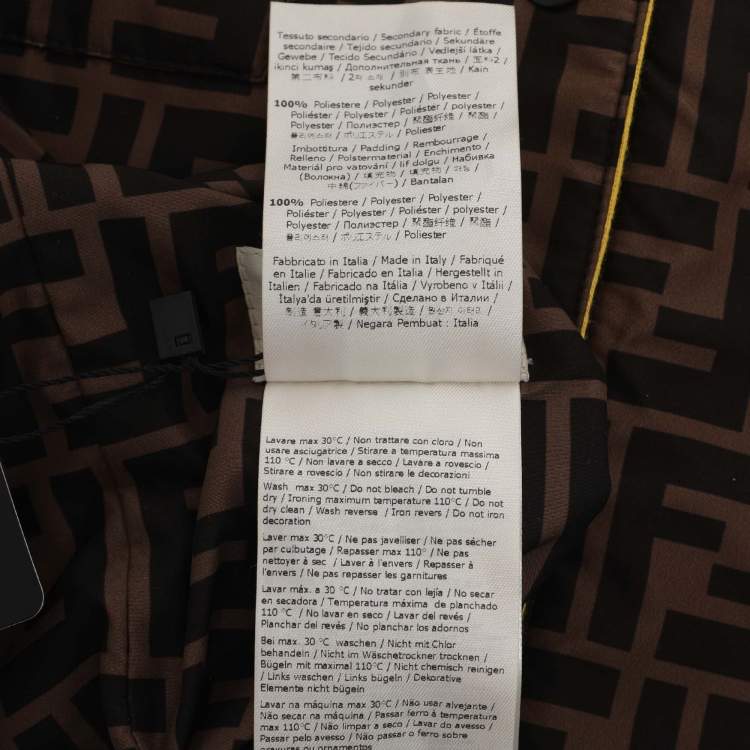 Tessuto secondario / Secondary fabric / Étoffe
secondaire / Tejido secundario / Sekundäre
Gewebe / Tecido Secundário / Vedlejší látka /
ikinci kumaş / Дополнительная ткань / 面料2 /
第二布料 / 2차 소재 / 別布 表生地 / Kain
sekunder
100% Poliestere / Polyester / Polyester /
Poliéster / Polyester / Poliéster / polyester /
Polyester / Полиэстер / 聚酯纤维 / 聚酯 /
폴리에스터 / ポリエステル / Poliester
Imbottitura / Padding / Rembourrage /
Relleno / Polstermaterial / Enchimento /
Materiál pro vatování / lif dolgu / Набивка
(Волокна) / 填充物 / 填充物 / 충전 /
中綿(ファイバー) / Bantalan
100% Poliestere / Polyester / Polyester /
Poliéster / Polyester / Poliéster / polyester /
Polyester / Полиэстер / 聚酯纤维 / 聚酯 /
폴리에스터 / ポリエステル / Poliester
Fabbricato in Italia / Made in Italy / Fabriqué
en Italie / Fabricado en Italia / Hergestellt in
Italien / Fabricado na Itália / Vyrobeno v Itálii /
Italya'da üretilmiştir / Сделано в Италии /
制造 意大利 / 義大利製造 / 원산지 이태리 /
イタリア製 / Negara Pembuat : Italia
Lavare max 30°C / Non trattare con cloro / Non
usare asciugatrice / Stirare a temperatura massima
110 °C / Non lavare a secco / Lavare a rovescio /
Stirare a rovescio / Non stirare le decorazioni
Wash max 30°C / Do not bleach / Do not tumble
dry / Ironing maximum temperature 110°C / Do not
dry clean / Wash reverse / Iron revers / Do not iron
decoration
Laver max 30°C / Ne pas javelliser / Ne pas sécher
par culbutage / Repasser max 110° / Ne pas
nettoyer à sec / Laver à l'envers / Repasser à
l'envers / Ne pas repasser les garnitures
Lavar máx. a 30 °C / No tratar con lejía / No secar
en secadora / Temperatura máxima de planchado
110 °C / No lavar en seco / Lavar del revés /
Planchar del revés / No planchar los adornos
Bei max. 30 °C waschen / Nicht mit Chlor
behandeln / Nicht im Wäschetrockner trocknen /
Bügeln mit maximal 110°C / Nicht chemisch reinigen
/ Links waschen / Links bügeln / Dekorative
Elemente nicht bügeln
Lavar na máquina max 30°C / Não usar alvejante /
Não secar na máquina / Passar ferro à temperatura
max 110°C / Não limpar a seco / Lavar do avesso /
Passar pelo avesso / Não passar o ferro sobre
gravuras ou ornamentos